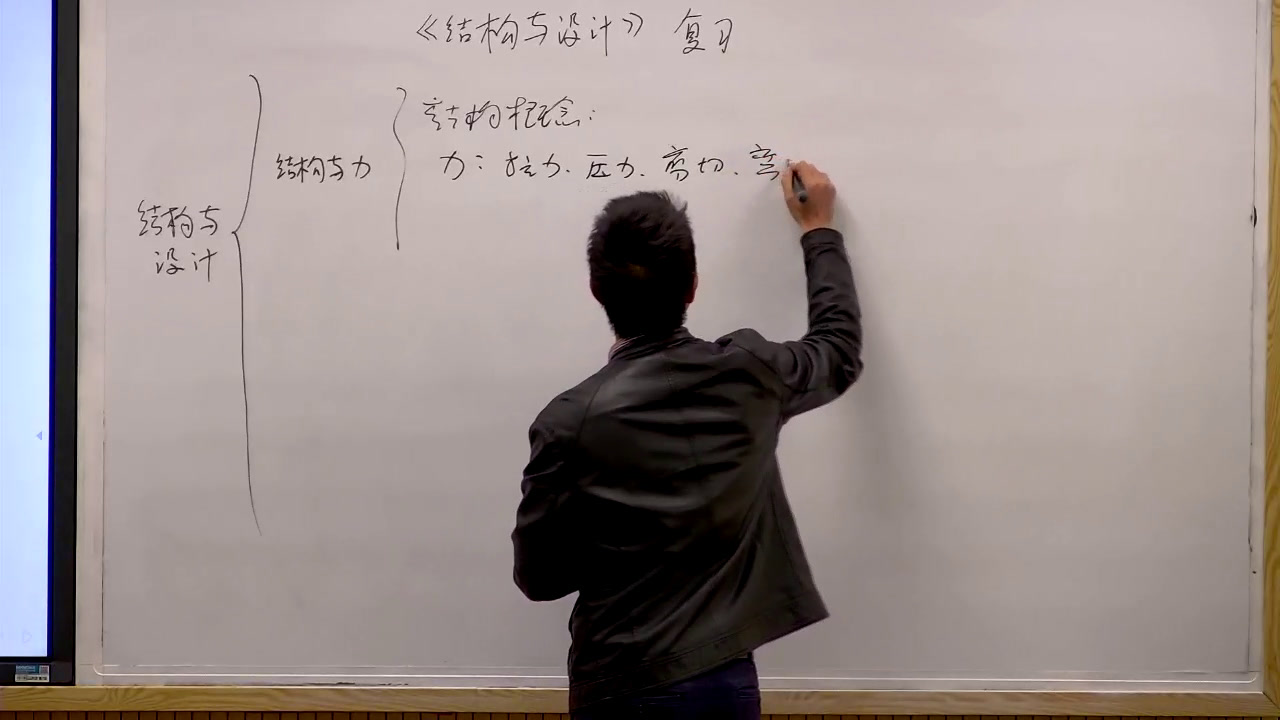 《结构与设计》 复习
结构概念:
力: 拉力、压力、剪切、弯
结构与力
结构与
设计